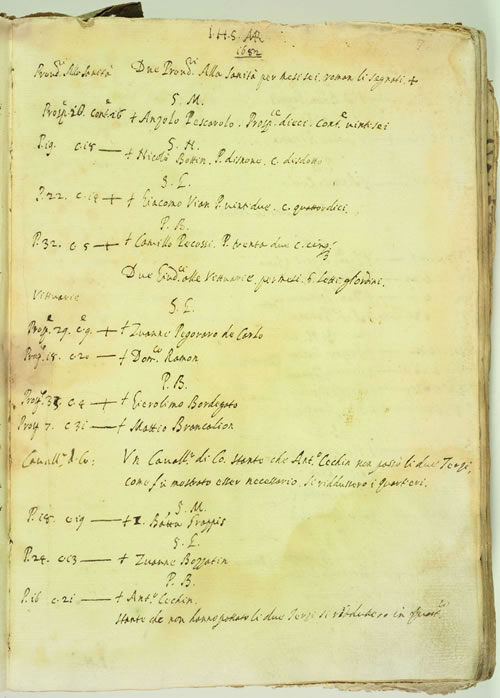 I.H.S. MR
1682
Prou.ri Alla Sanità Due Prou.ri Alla Sanità per mesi sei. roman li segnati +
S. M.
Prosp.e 26. Cont.e 26 + Anzolo Pescarolo. Prosp.e dieci. Cont.e uintisei
S. N.
P. 19. c. 18 — + Nicolò Bottin. P. disnoue. c. disdotto
S. L.
P. 22. c. 14 + + Giacomo Vian P. uintidue. c. quattordici
P. B.
P. 32. c. 5 + + Camillo Pecossi. P. trenta due c. cinq.
Due Giud.ci alle Vittuarie. per mesi 6.
Vittuarie S. L.
Prosp.e 29. c.e 9. + + Zuanne Pegoraro de Carlo
Prosp.e 18. c. 20 — + Dom.co Ramon
P. B.
c. 4 + + Gierolimo Bordegato
Prosp. 7. c. 31 — + Mattio Brancalion
Caual.r di Co: Vn Caual.r di Co. stante che Ant.o Cechin non passò li due Terzi,
come fù mostrato esser necessario. si riddussero i quartieri.
S. M.
P. 18. c. 19 — Batta Frappis
S. L.
P. 24. c. 13 — + Zuanne Bozzatin
P. B.
P. 16 c. 21 — + Ant.o Cechin.
stante che non hanno li due Terzi si riddussero in